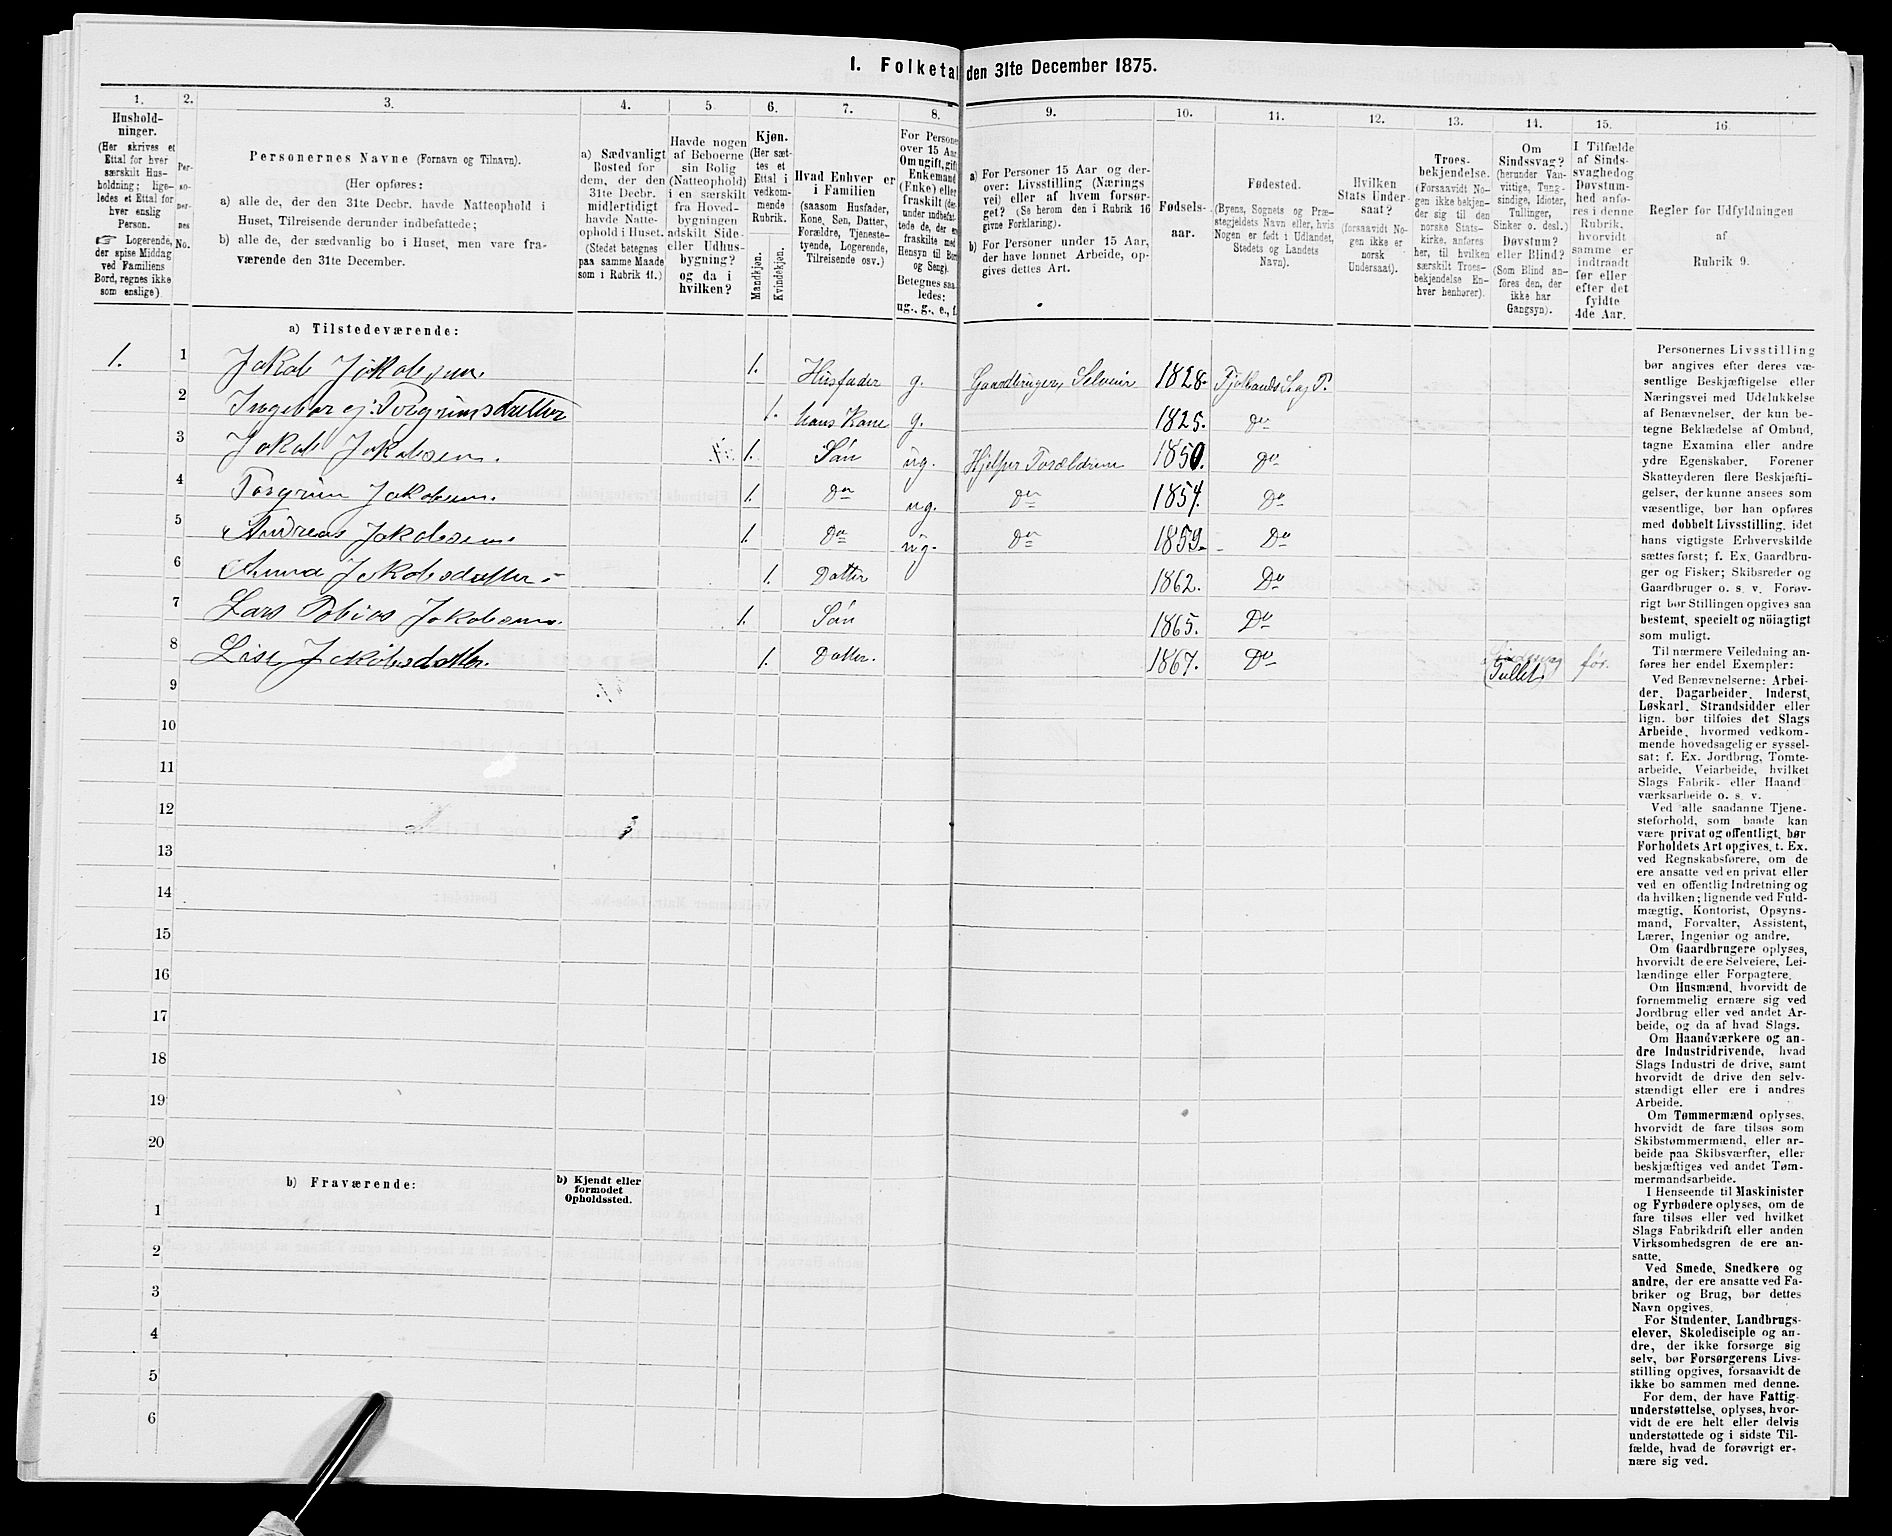 I. Folketal den 31te December 1875.
1. 2. 3. 4. 5. 6. 7. 8. 9. 10. 11. 12. 13. 14. 15. 16.
Hushold-
ninger.
(Her skrives et
Ettal for hver
særskilt Hus-
holdning; lige-
ledes et Ettal for
hver enslig
Person.
☞ Logerende,
der spise Middag
ved Familiens
Bord, regnes ikke
som enslige).
Per-
so-
ner-
nes
No.
Personernes Navne (Fornavn og Tilnavn).
(Her opføres:
a) alle de, der den 31te Decbr. havde Natteophold i
Huset, Tilreisende derunder indbefattede;
b) alle de, der sædvanlig bo i Huset, men vare fra-
værende den 31te December.
a) Sædvanligt
Bosted for
dem, der den
31te Decbr.
midlertidigt
havde Natte-
ophold i Huset.
(Stedet betegnes
paa samme Maade
som i Rubrik 11.)
Havde nogen
af Beboerne
sin Bolig
(Natteophold)
i en særskilt
fra Hoved-
bygningen
adskilt Side-
eller Udhus-
bygning?
og da i
hvilken?
Kjøn.
(Her sæt-
tes et
Ettal i
vedkom-
mende
Rubrik.
Mandkjøn.
Kvindekjøn.
Hvad Enhver er
i Familien
(saasom Husfader,
Kone, Søn, Datter,
Forældre, Tjeneste-
tyende, Logerende,
Tilreisende osv.)
For Personer
over 15 Aar:
Om ugift, gift,
Enkemand
(Enke) eller
fraskilt (der-
under indbefat-
tede de, der er
fraskilte med
Hensyn til Bord
og Seng).
Betegnes saa-
ledes:
ug., g., e., f.
a) For Personer 15 Aar og der-
over: Livsstilling (Nærings
vei) eller af hvem forsør-
get? (Se herom den i Rubrik 16
givne Forklaring).
b) For Personer under 15 Aar,
der have lønnet Arbeide, op-
gives dettes Art.
Fødsels-
aar.
Fødested.
(Byens, Sognets og Præ-
stegjeldets Navn eller, hvis
Nogen er født i Udlandet,
Stedets og Landets
Navn).
Hvilken
Stats Under-
saat?
(forsaavidt No-
gen ikke er
norsk
Undersaat).
Troes-
bekjendelse.
(Forsaavidt No-
gen ikke bekjen-
der sig til den
norske Stats-
kirke, anføres
her, til hvilken
særskilt Troes-
bekjendelse En-
hver henhører).
Om
Sindssvag?
(herunder Van-
vittige, Tung-
sindige, Idioter,
Tullinger,
Sinker o. desl.)
Døvstum?
eller Blind?
(Som Blind an-
föres den, der
ikke har
Gangsyn).
I Tilfælde
af Sinds-
svaghedog
Døvstum-
hed anfø-
res i denne
Rubrik,
hvorvidt
samme er
indtraadt
før eller
efter det
fyldte
4de Aar.
Regler for Udfyldningen
af
Rubrik 9.
a) Tilstedeværende:
1. 1 Jakob Jakobsen. 1. Husfader g. Gaardbruger, Selveier 1828. Fjotlands S. og P.
2 Ingebor ej: Torgrimsdatter 1. hans Kone g. 1825. do
3 Jakob Jakobsen. 1. Søn ug. Hjelper Forældrene 1850. do
4 Torgrim Jakobsen. 1. Do ug. do 1854. do
5 Andreas Jakobsen. 1. Do ug. do 1859. Do
6 Anna Jakobsdatter 1. Datter 1862. Do
7 Lars Tobias Jakobsen. 1. Søn 1865. Do
8 Lise Jakobsdatter. 1. Datter. 1867. Do Sindssvag (Tullet) før.
9
10
11
12
13
14
15
16
17
18
19
20
b) Fraværende:
b) Kjendt eller
formodet
Opholdssted.
1
2
3
4
5
6
Personernes Livsstilling
bør angives efter deres væ-
sentlige Beskjæftigelse eller
Næringsvei med Udelukkelse
af Benævnelser, der kun be-
tegne Beklædelse af Ombud,
tagne Examina eller andre
ydre Egenskaber. Forener
Skatteyderen flere Beskjæfti-
gelser, der kunne ansees som
væsentlige, bør han opføres
med dobbelt Livsstilling, idet
hans vigtigste Erhvervskilde
sættes først; f. Ex. Gaardbru-
ger og Fisker; Skibsreder og
Gaardbruger o. s. v. Forøv-
rigt bør Stillingen opgives saa
bestemt, specielt og nöiagtigt
som muligt.
Til nærmere Veiledning an-
føres her endel Exempler:
Ved Benævnelserne: Arbei-
der, Dagarbeider, Inderst,
Løskarl, Strandsidder eller
lign. bør tilføies det Slags
Arbeide, hvormed vedkom-
mende hovedsagelig er syssel-
sat; f. Ex. Jordbrug, Tomte-
arbeide, Veiarbeide, hvilket
Slags Fabrik- eller Haand
værksarbeide o. s. v.
Ved alle saadanne Tjene-
steforhold, som baade kan
være privat og offentligt, bør
Forholdets Art opgives, f. Ex.
ved Regnskabsførere, om de
ere ansatte ved en privat eller
ved en offentlig Indretning og
da hvilken; lignende ved Fuld-
mægtig, Kontorist, Opsyns-
mand, Forvalter, Assistent,
Lærer, Ingeniør og andre.
Om Gaardbrugere oplyses,
hvorvidt de ere Selveiere, Lei-
lændinge eller Forpagtere.
Om Husmænd, hvorvidt de
fornemmelig ernære sig ved
Jordbrug eller ved andet Ar-
beide, og da af hvad Slags.
Om Haandværkere og an-
dre Industridrivende, hvad
Slags Industri de drive, samt
hvorvidt de drive den selv-
stændigt eller ere i andres
Arbeide.
Om Tømmermænd oplyses,
hvorvidt de fare tilsøs som
Skibstømmermænd, eller ar-
beide paa Skibsværfter, eller
beskjæftiges ved andet Tøm-
mermandsarbeide.
I Henseende til Maskinister
og Fyrbødere oplyses, om de
fare tilsøs eller ved hvilket
Slags Fabrikdrift eller anden
Virksomhedsgren de ere an-
satte.
Ved Smede, Snedkere og
andre, der ere ansatte ved Fa-
briker og Brug, bør dettes
Navn opgives.
For Studenter, Landbrugs-
elever, Skoledisciple og an-
dre, der ikke forsørge sig
selv, bør Forsørgerens Livs-
stilling opgives, forsaavidt de
ikke bo sammen med denne.
For dem, der have Fattig-
understøttelse, oplyses, hvor-
vidt de ere helt eller delvis
understøttede og i sidste Til-
fælde, hvad de forøvrigt er-
nære sig ved.